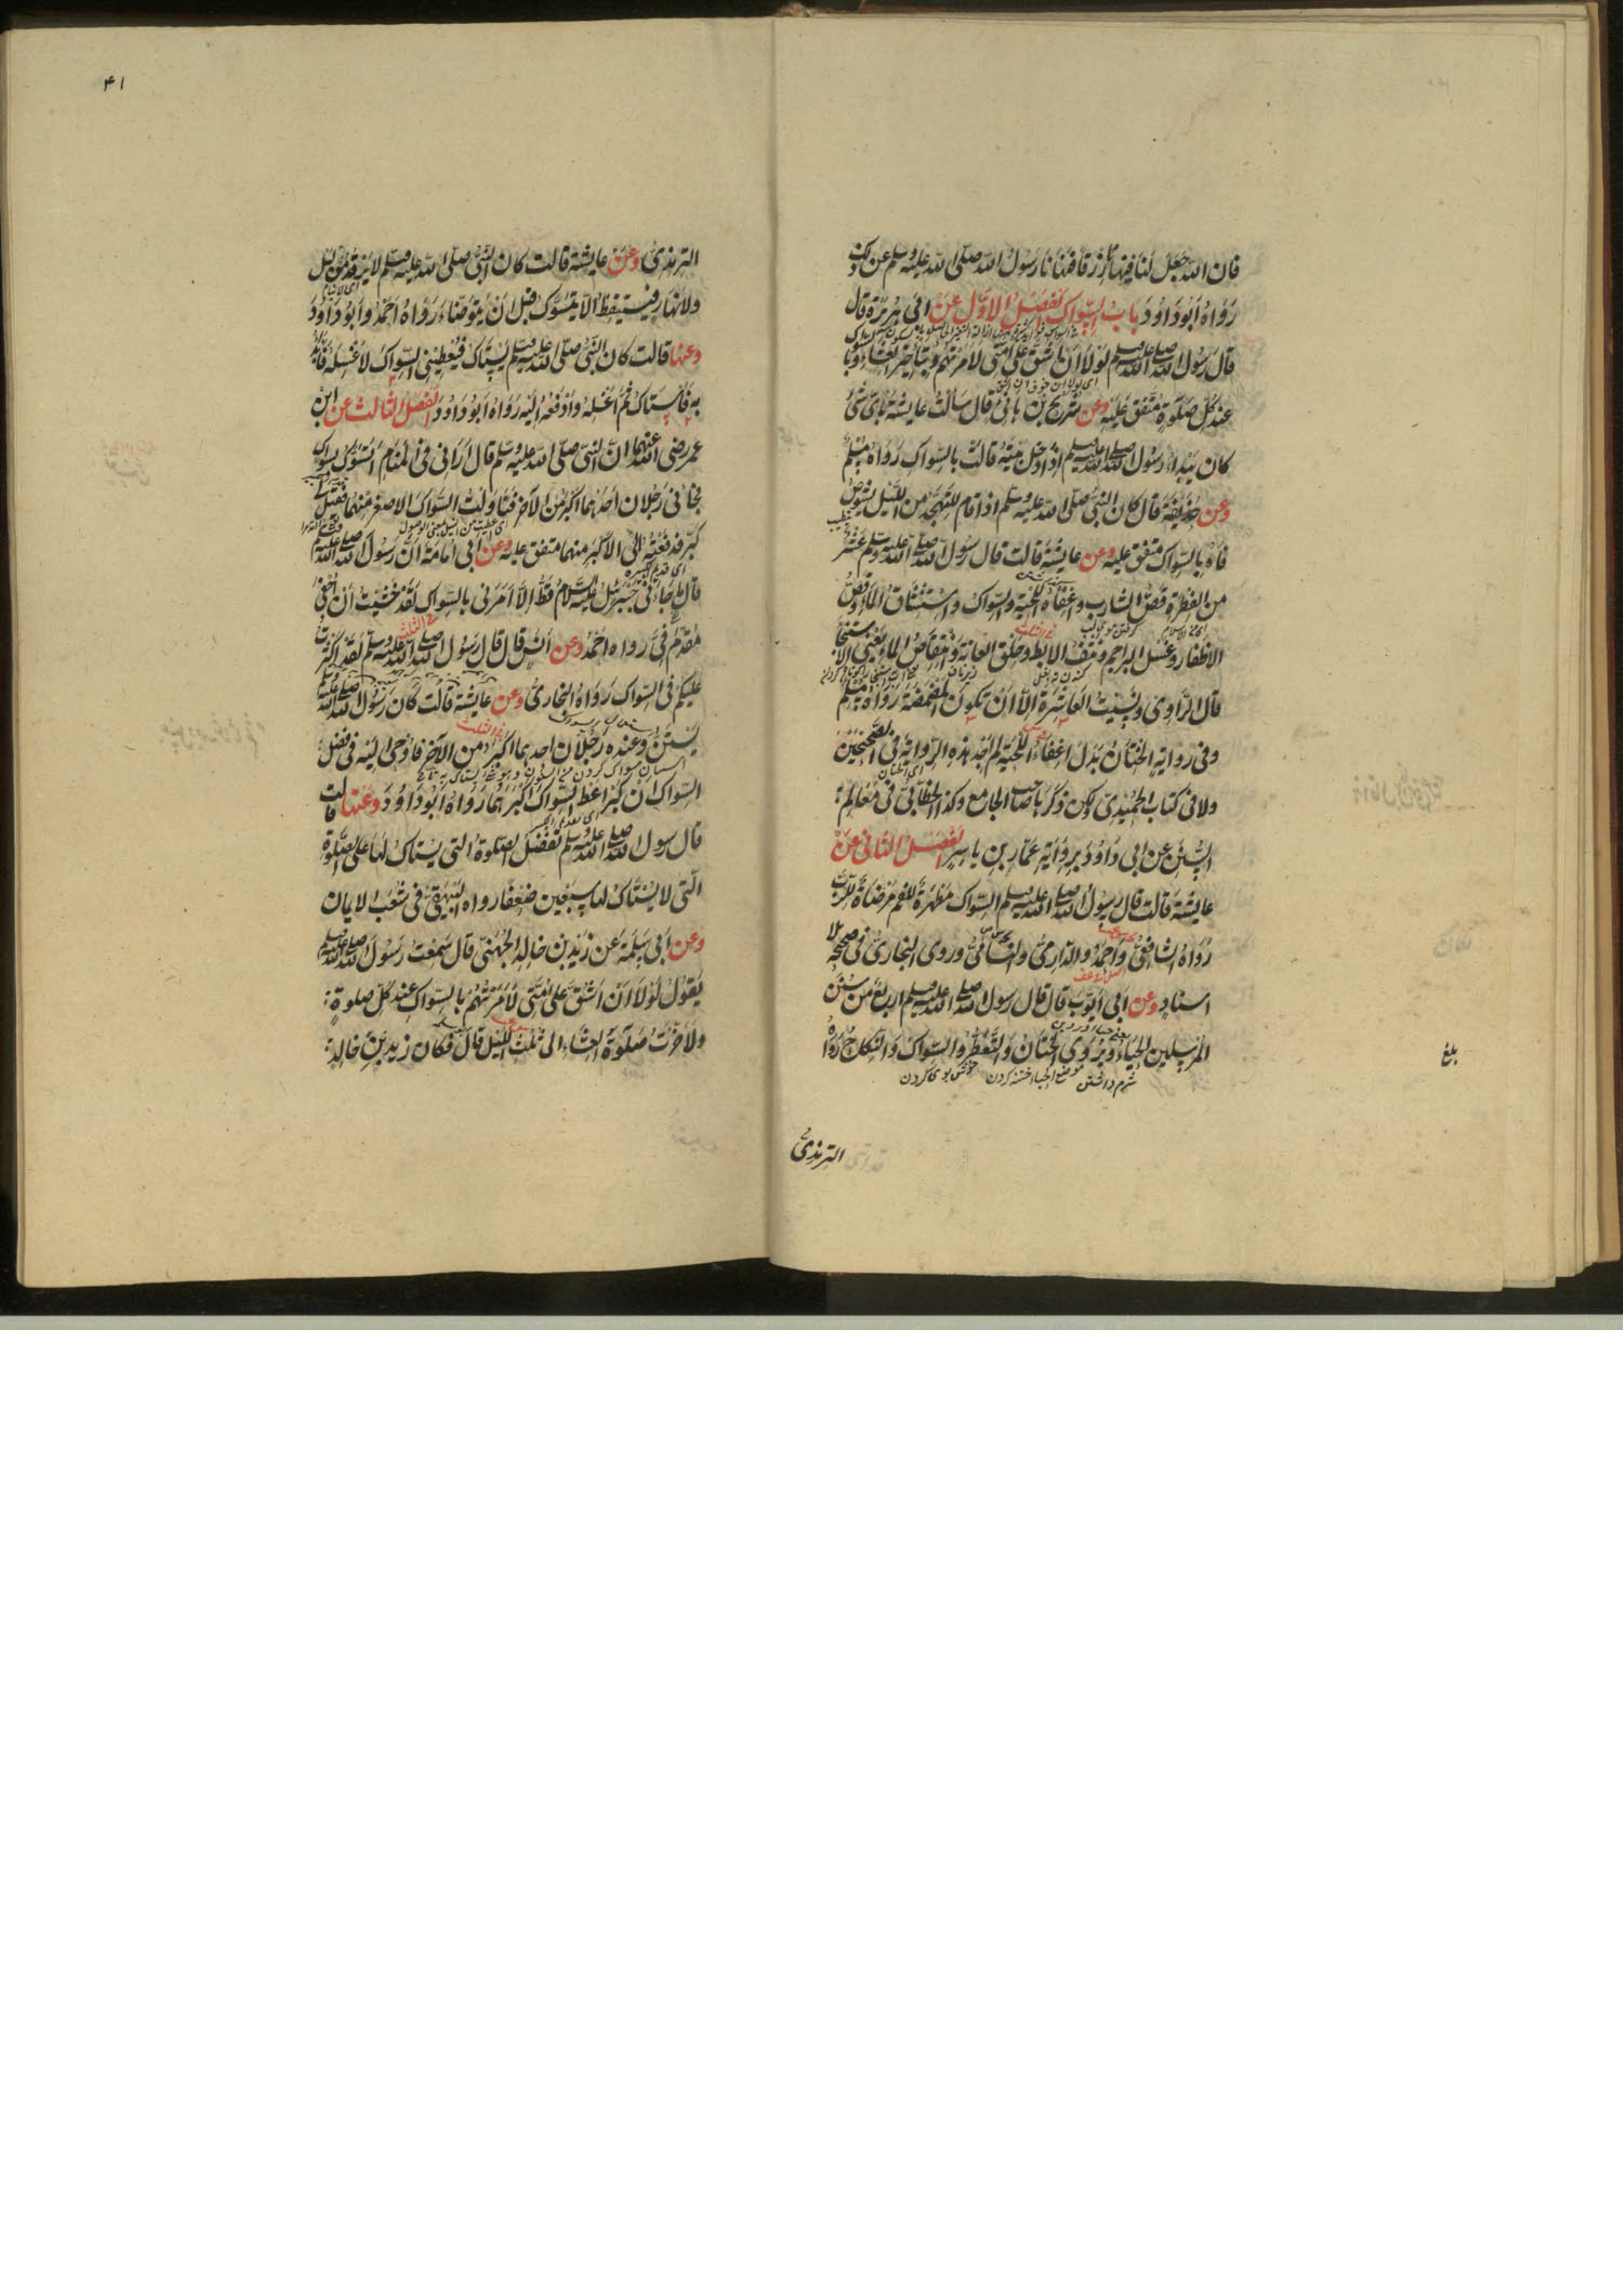 فان الله جعل لنا فيها رزقا فنهانا رسول الله صلى الله عليه وسلم عن ذلك
رواه ابو داود باب السواك الفصل الاول عن ابي هريرة قال
قال رسول الله صلى الله عليه وسلم لولا ان اشق على امتي لامرتهم بتاخير العشاء وبالسواك
عند كل صلوة متفق عليه وعن شريح بن هانئ قال سالت عايشة باي شئ
كان يبدأ رسول الله صلى الله عليه وسلم اذا دخل بيته قالت بالسواك رواه مسلم
وعن حذيفة قال كان النبي صلى الله عليه وسلم اذا قام للتهجد من الليل يشوص
فاه بالسواك متفق عليه وعن عايشة قالت قال رسول الله صلى الله عليه وسلم عشر
من الفطرة قص الشارب واعفاء اللحية والسواك واستنشاق الماء وقص
الاظفار وغسل البراجم ونتف الابط وحلق العانة وانتقاص الماء يعني الاستنجاء
قال الراوي ونسيت العاشرة الا ان تكون المضمضة رواه مسلم
وفي رواية الختان بدل اعفاء اللحية لم اجد هذه الرواية في الصحيحين
ولا في كتاب الحميدي ولكن ذكرها صاحب الجامع وكذا الخطابي في معالم
السنن عن ابي داود برواية عمار بن ياسر الفصل الثاني عن
عايشة قالت قال رسول الله صلى الله عليه وسلم السواك مطهرة للفم مرضاة للرب
رواه الشافعي واحمد والدارمي والنسائي وروى البخاري في صحيحه بلا
اسناد وعن ابي ايوب قال قال رسول الله صلى الله عليه وسلم اربع من سنن
المرسلين الحياء ويروى الختان والتعطر والسواك والنكاح رواه
شرم داشتن موضع الحياء ختنه كردن خوش بوى كردن
بلغ
الترمذي
۴۱
الترمذي وعن عايشة قالت كان النبي صلى الله عليه وسلم لا يرقد من ليل
ولا نهار فيستيقظ الا يتسوك قبل ان يتوضاء رواه احمد وابو داود
وعنها قالت كان النبي صلى الله عليه وسلم يستاك فيعطيني السواك لاغسله فابدأ
به فاستاك ثم اغسله وادفعه اليه رواه ابو داود الفصل الثالث عن ابن
عمر رضي الله عنهما ان النبي صلى الله عليه وسلم قال اراني في المنام اتسوك بسواك
فجائني رجلان احدهما اكبر من الآخر فناولت السواك الاصغر منهما فقيل لي
كبر فدفعته الى الاكبر منهما متفق عليه وعن ابي امامة ان رسول الله صلى الله عليه وسلم
قال ما جاءني جبرئيل عليه السلام قط الا امرني بالسواك لقد خشيت ان احفي
مقدم في رواه احمد وعن انس قال قال رسول الله صلى الله عليه وسلم لقد اكثرت
عليكم في السواك رواه البخاري وعن عايشة قالت كان رسول الله صلى الله عليه وسلم
يستن وعنده رجلان احدهما اكبر من الآخر فاوحى اليه في فضل
السواك ان كبر اعط السواك اكبرهما رواه ابو داود وعنها قالت
قال رسول الله صلى الله عليه وسلم تفضل الصلوة التي يستاك لها على الصلوة
التي لا يستاك لها سبعين ضعفا رواه البيهقي في شعب الايمان
وعن ابي سلمة عن زيد بن خالد الجهني قال سمعت رسول الله صلى الله عليه وسلم
يقول لولا ان اشق على امتي لامرتهم بالسواك عند كل صلوة
ولاخرت صلوة العشاء الى ثلث الليل قال فكان زيد بن خالد